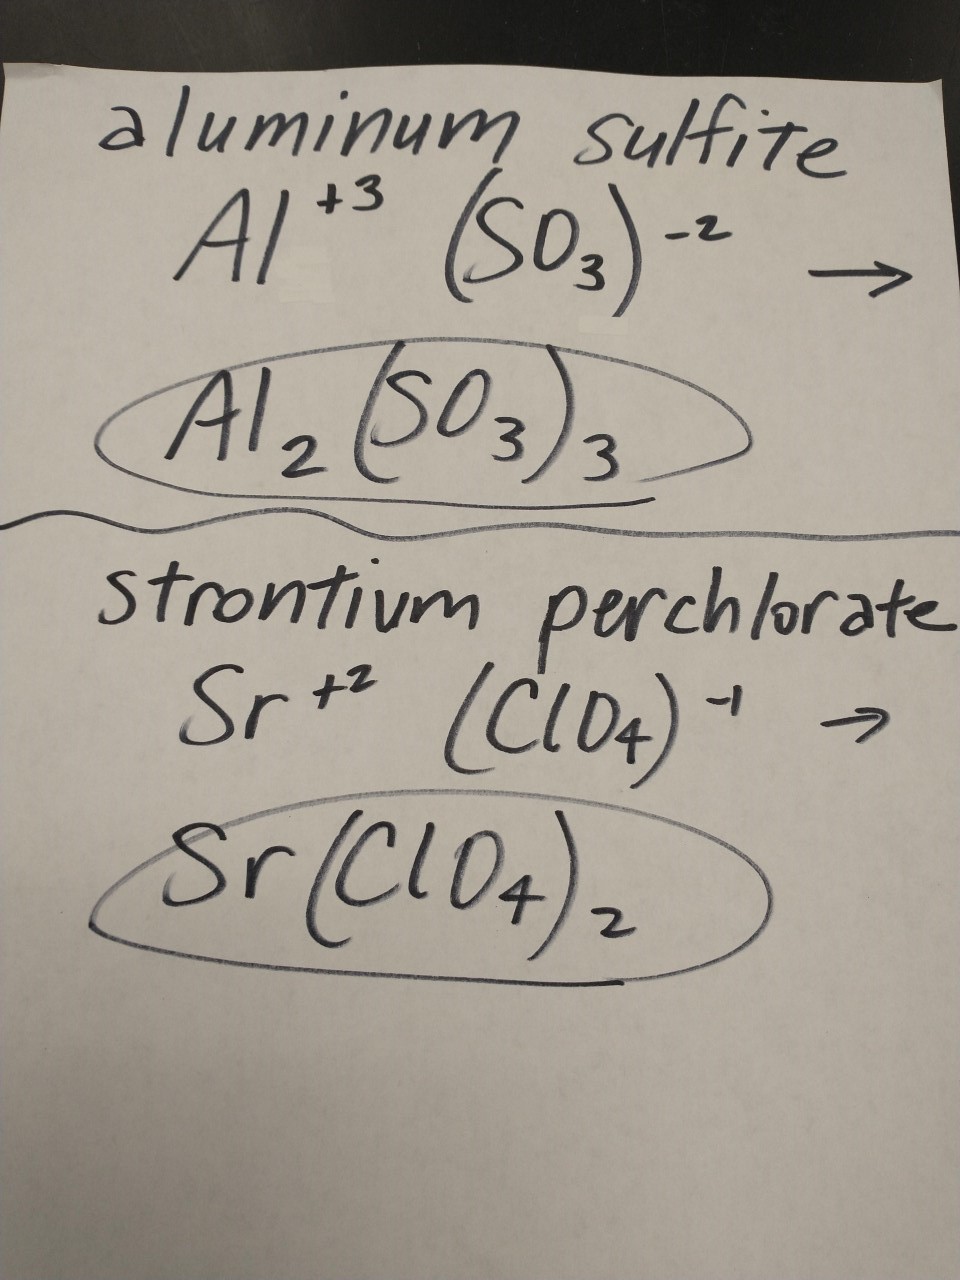 aluminum sulfite
Al⁺³ (SO₃)⁻² →
Al₂(SO₃)₃
strontium perchlorate
Sr⁺² (ClO₄)⁻¹ →
Sr(ClO₄)₂